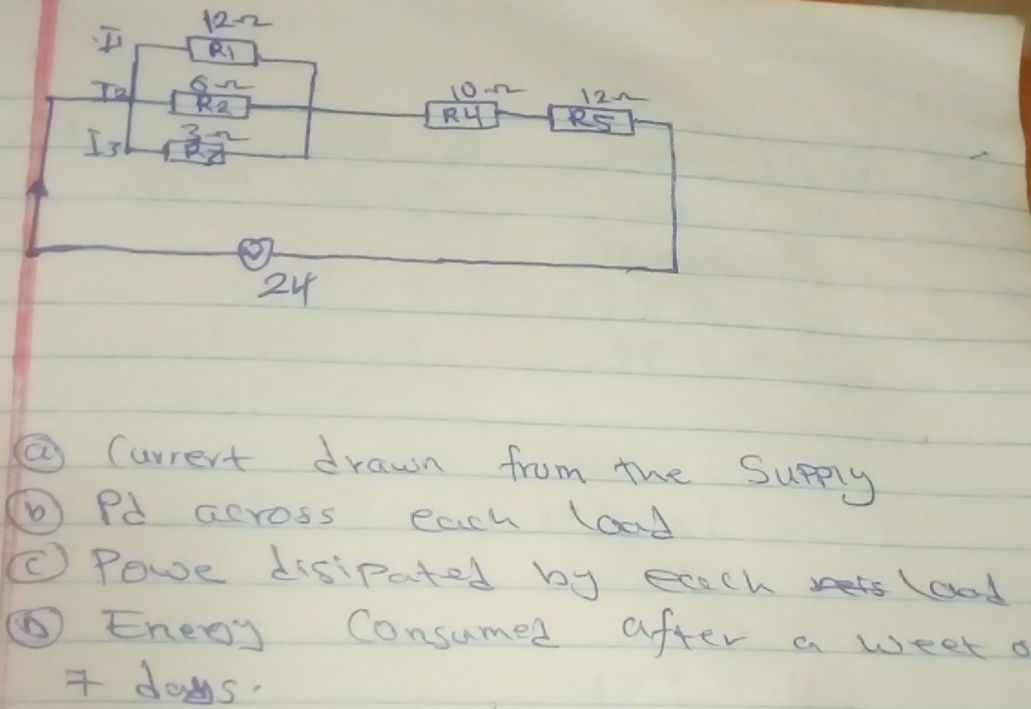 12Ω
I1
R1
6Ω
I2
R2
10Ω
12Ω
R4
R5
3Ω
I3
24
(a) Current drawn from the Supply
(b) Pd across each load
(c) Powe disipated by each load
(D) Energy Consumed after a week o
7 days.